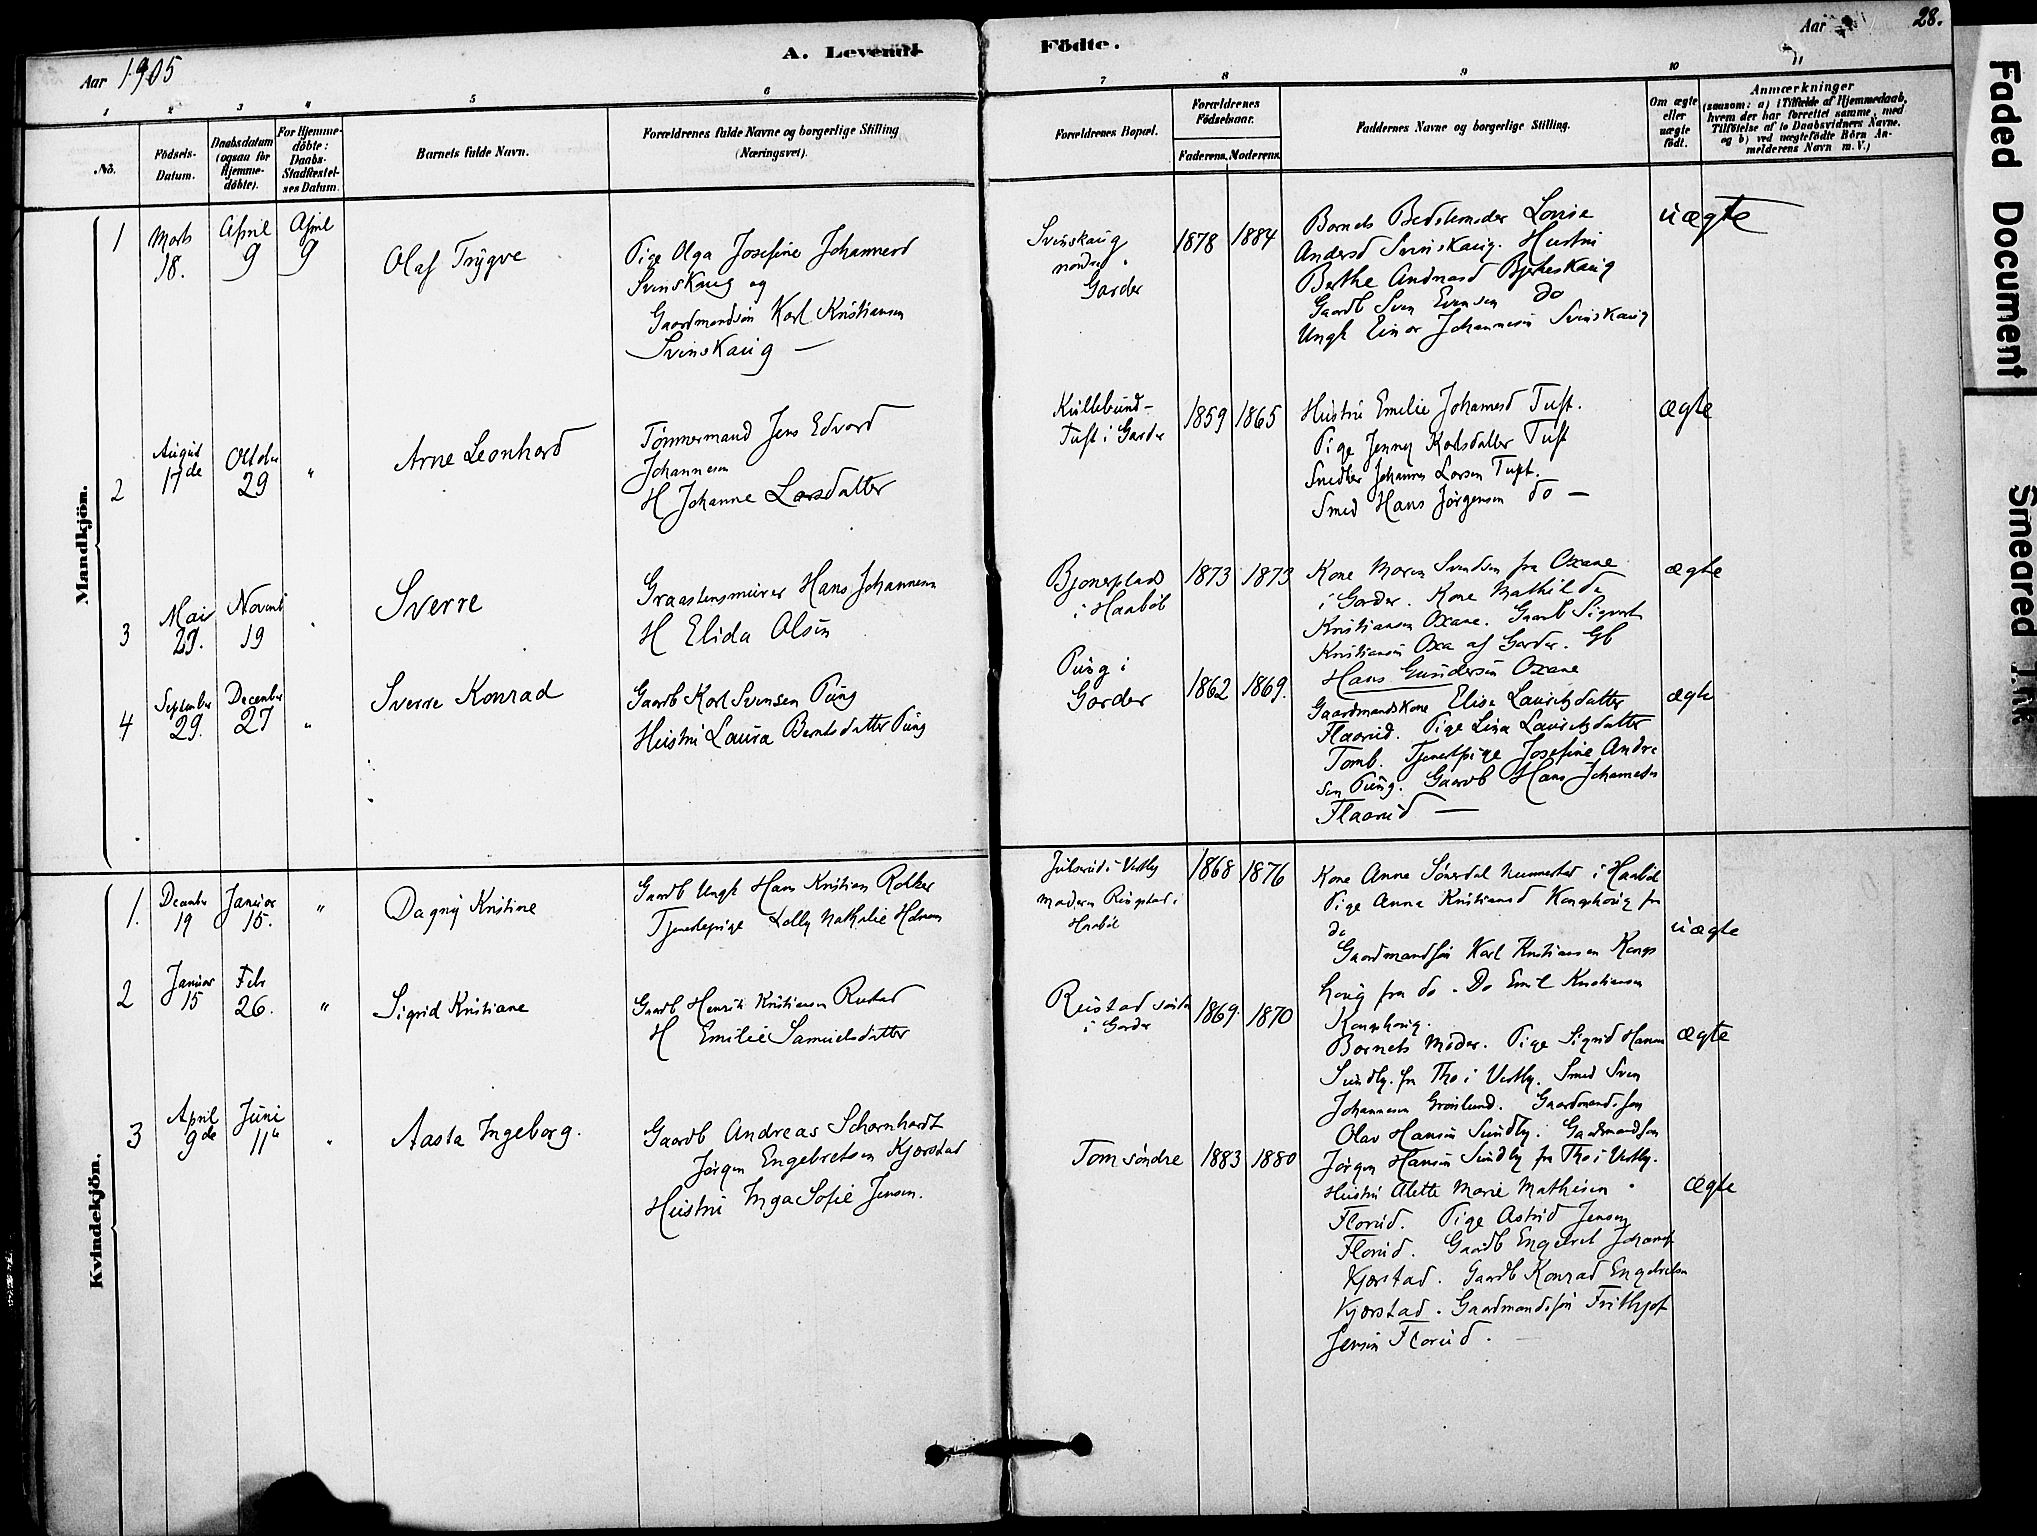 Aar 1905
A. Levende
Födte.
Aar
28.
1 2 3 4 5 6 7 8 9 10 11
No.
Födsels-
Datum.
Daabsdatum
(ogsaa for
Hjemme-
döbte).
For Hjemme-
döbte:
Daabs-
Stadfæstel-
ses Datum.
Barnets fulde Navn.
Forældrenes fulde Navne og borgerlige Stilling
(Næringsvei).
Forældrenes Bopæl.
Forældrenes
Födselsaar.
Faderens. Moderens.
Faddernes Navne og borgerlige Stilling.
Om ægte
eller
uægte
födt.
Anmærkninger
(saasom: a) i Tilfælde af Hjemmedaab,
hvem der har forrettet samme, med
Tilföielse af to Daabsvidners Navne,
og b) ved uægtefödte Börn An-
melderens Navn m. V.)
Mandkjön.
1
Marts
18.
April
9
April
9
Olaf Trygve
Pige Olga Josefine Johannesd
Svinskaug og
Gaardmandsön Karl Kristiansen
Svinskaug —
Svinskaug
nordre.
Garder
1878 1884
Barnets Bedstemoder Lovise
Andersd Svinskaug. Hustru
Berthe Andreasd Bjerkeskaug
Gaardb Sven Evensen do
Ungk Einar Johannesen Svinskaug
uægte
2
August
17de
Oktober
29
"
Arne Leonhard
Tömmermand Jens Edvard
Johannesen
H Johanne Larsdatter
Küllebund-
Tuft i Garder
1859 1865
Hustru Emilie Johannesd Tuft.
Pige Jenny Karlsdatter Tuft
Snedker Johannes Larsen Tuft.
Smed Hans Jörgensen do —
ægte
3
Mai
29.
Novemb
19
"
Sverre
Graastensmurer Hans Johannesen
H Elida Olsen
Bjonerplads
i Haaböl
1873 1873
Kone Maren Svendsen fra Oxane
i Garder. Kone Mathilde
Kristiansen Oxane. Gaardb Sigvart
Kristiansen Oxa af Garder. Gb
Hans Gundersen Oxane
ægte
4
September
29.
December
27
"
Sverre Konrad
Gaardb Karl Svensen Pung
Hustru Laura Berntsdatter Pung
Pung i
Garder
1862 1869.
Gaardmandskone Elise Lauritzdatter
Flaarud. Pige Lina Lauritzdatter
Tomb. Tjenestpige Josefine Andre
sen Pung. Gaardb Hans Johannesen
Flaarud —
ægte
Kvindekjön.
1.
December
19
Januar
15.
"
Dagny Kristine
Gaardb Ungk Hans Kristian
Tjenestepige Lolly Nathalie
Julsrud i Vestby
Moderen Ringstad i
Haaböl
1868 1876
Kone Anne Sönsdal i Haaböl
Pige Anna Kristiansd Kongshaug fra
do
Gaardmandsön Karl Kristiansen Kongs
haug fra do. Do Emil Kristiansen
Kongshaug.
uægte
2
Januar
15
Febr
26.
"
Sigrid Kristiane
Gaardb Henrik Kristiansen Rustad
H Emilie Samuelsdatter
Rustad söndre
i Garder
1869. 1870
Barnets Moder. Pige Sigrid Hansen
Sundby. fra Tho i Vestby. Smed Sven
Johannesen Gröslund. Gaardmandsson
Olav Hansen Sundby. Gaardmandsson
Jörgen Hansen Sundby fra Tho i Vestby.
ægte
3
April
9de
Juni
11te
"
Aasta Ingeborg.
Gaardb Andreas Scharnhardt
Jörgen Engebretsen Kjærstad
Hustru Inga Sofie Jensen.
Tom söndre
1883 1880
Hustru Alette Marie Mathisen
Florud. Pige Astrid Jensen
Florud. Gaardb Engebret Johannes
Kjærstad. Gaardb Konrad Engebretsen
Kjærstad. Gaardmandssön Frithjof
Jensen Florud.
ægte
Faded Document
Smeared Ink